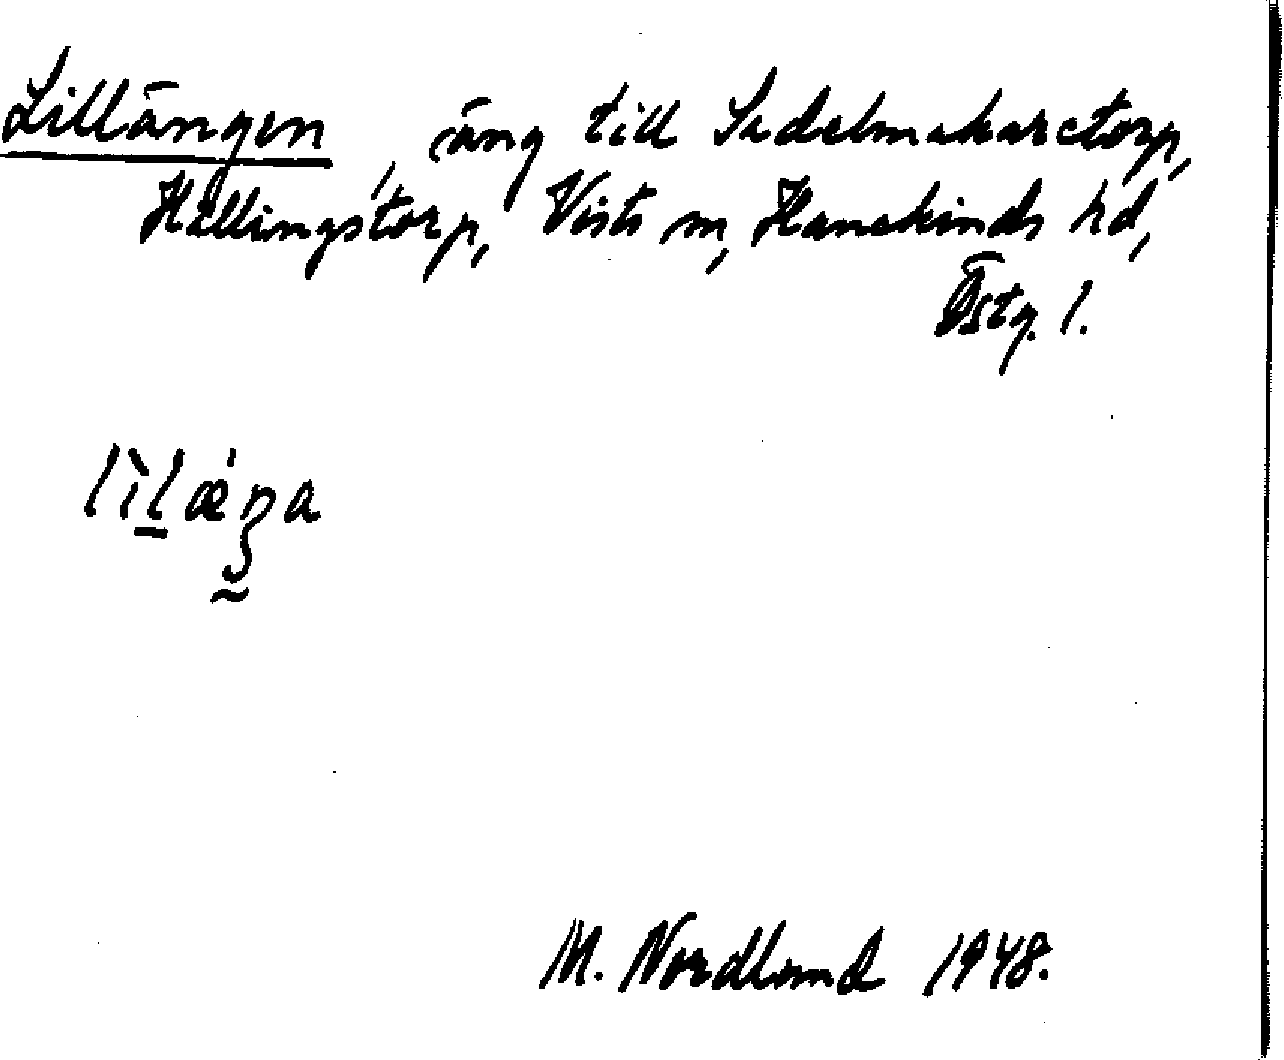 Lillängen, äng till Sadelmakaretorp,
Hällingstorp, Vists sn, Hanekinds hd,
Östg. l.
lìlǽŋa
M. Nordlund 1948.